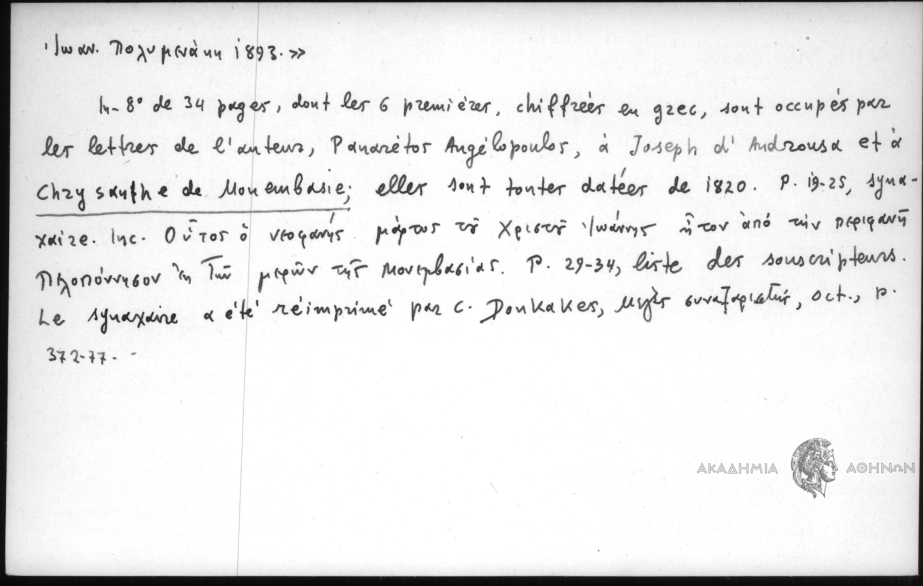 Ἰωαν. Πολυμενάκη 1893.»
In-8° de 34 pages, dont les 6 premières, chiffrées en grec, sont occupés par
les lettres de l'auteur, Panarétos Angélopoulos, à Joseph d'Androusa et à
Chrysanthe de Monembasie; elles sont toutes datées de 1820. P. 19-25, syna-
xaire. Inc. Οὗτος ὁ νεοφανής μάρτυς τοῦ Χριστοῦ Ἰωάννης ἦτον ἀπό τήν περιφανῆ
Πελοπόννησον ἐκ τῶν μερῶν τῆς Μονεμβασίας. P. 29-34, liste des souscripteurs.
Le synaxaire a été réimprimé par C. Doukakes, Μέγας συναξαριστής, Oct., p.
372-77.-
ΑΚΑΔΗΜΙΑ ΑΘΗΝΩΝ